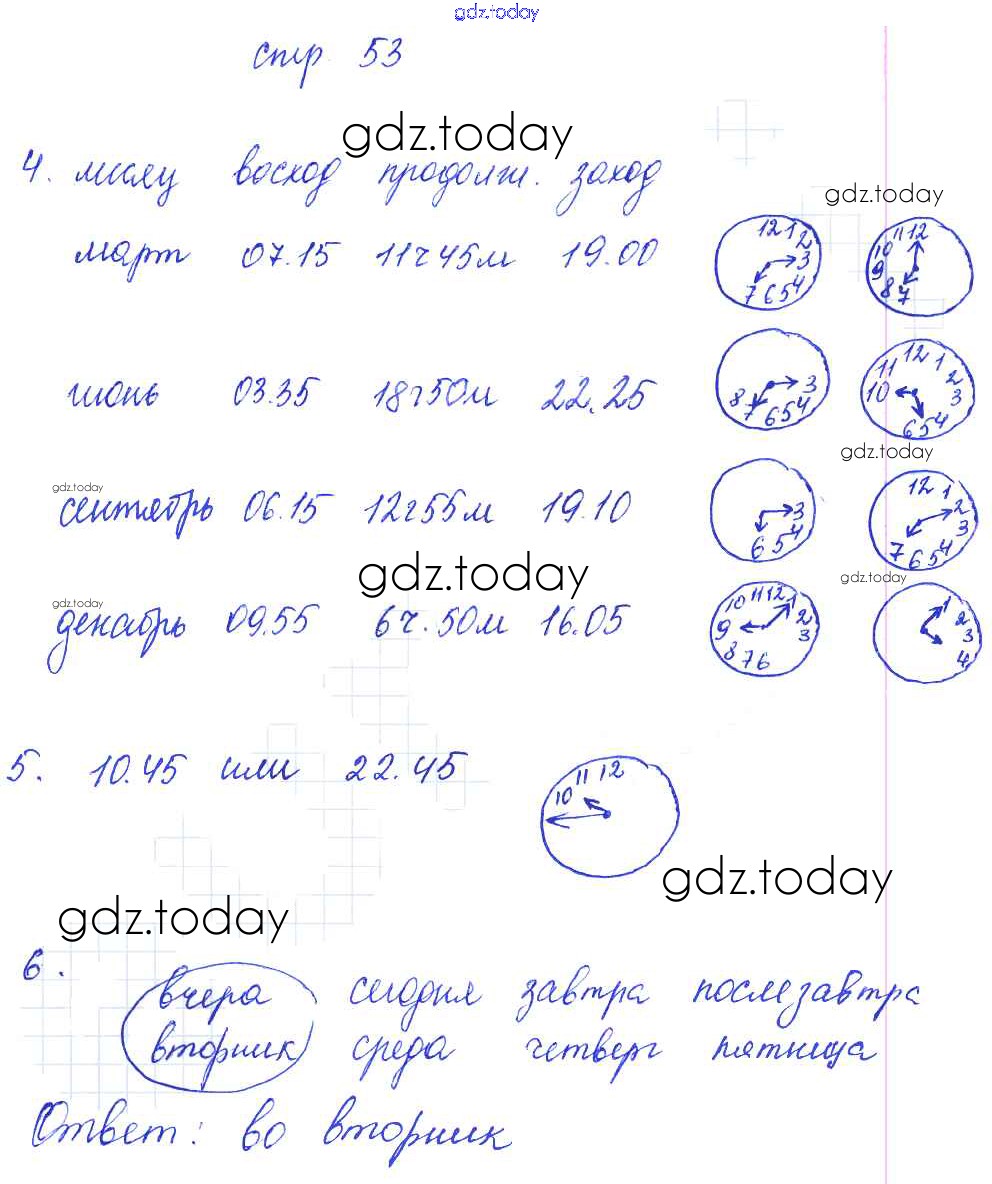 gdz.today
стр 53
gdz.today
4. месяц восход продолж. заход
gdz.today
март 07.15 11ч45м 19.00
12 1 2 3 4 5 6 7
12 11 10 9 8 7
июнь 03.35 18ч50м 22.25
3 4 5 6 7 8
10 11 12 1 2 3 4 5 6
gdz.today
gdz.today
сентябрь 06.15 12ч55м 19.10
3 4 5 6
12 1 2 3 4 5 6 7
gdz.today
gdz.today
gdz.today
декабрь 09.55 6ч.50м 16.05
9 10 11 12 1 2 3 6 7 8
1 2 3 4
5. 10.45 или 22.45
10 11 12
gdz.today
gdz.today
6.
вчера сегодня завтра послезавтра
вторник среда четверг пятница
Ответ: во вторник